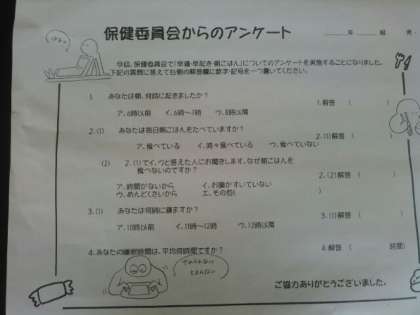 保健委員会からのアンケート
年 組 番
今回、保健委員会で「早寝・早起き・朝ごはん」についてのアンケートを実施することになりました。
下記の質問に答えて右側の解答欄に数字・記号を一つ書いてください。
1. あなたは朝、何時に起きましたか？ 1.解答 （ ）
ア.6時以前 イ.6時～7時 ウ.8時以降
2.(1) あなたは毎日朝ごはんをたべていますか？ 2.(1)解答 （ ）
ア.食べている イ.時々食べている ウ.食べていない
(2) 2.(1)でイ、ウと答えた人にお聞きします。なぜ朝ごはんを 2.(2)解答 （ ）
食べないのですか？
ア.時間がないから イ.お腹がすいていない
ウ.めんどくさいから エ.その他( )
3.(1) あなたは何時に寝ますか？ 3.(1)解答 （ ）
ア.10時以前 イ.11時～12時 ウ.12時以降
4.あなたの睡眠時間は、平均何時間ですか？ 4.解答 （ 時間）
ご協力ありがとうございました。